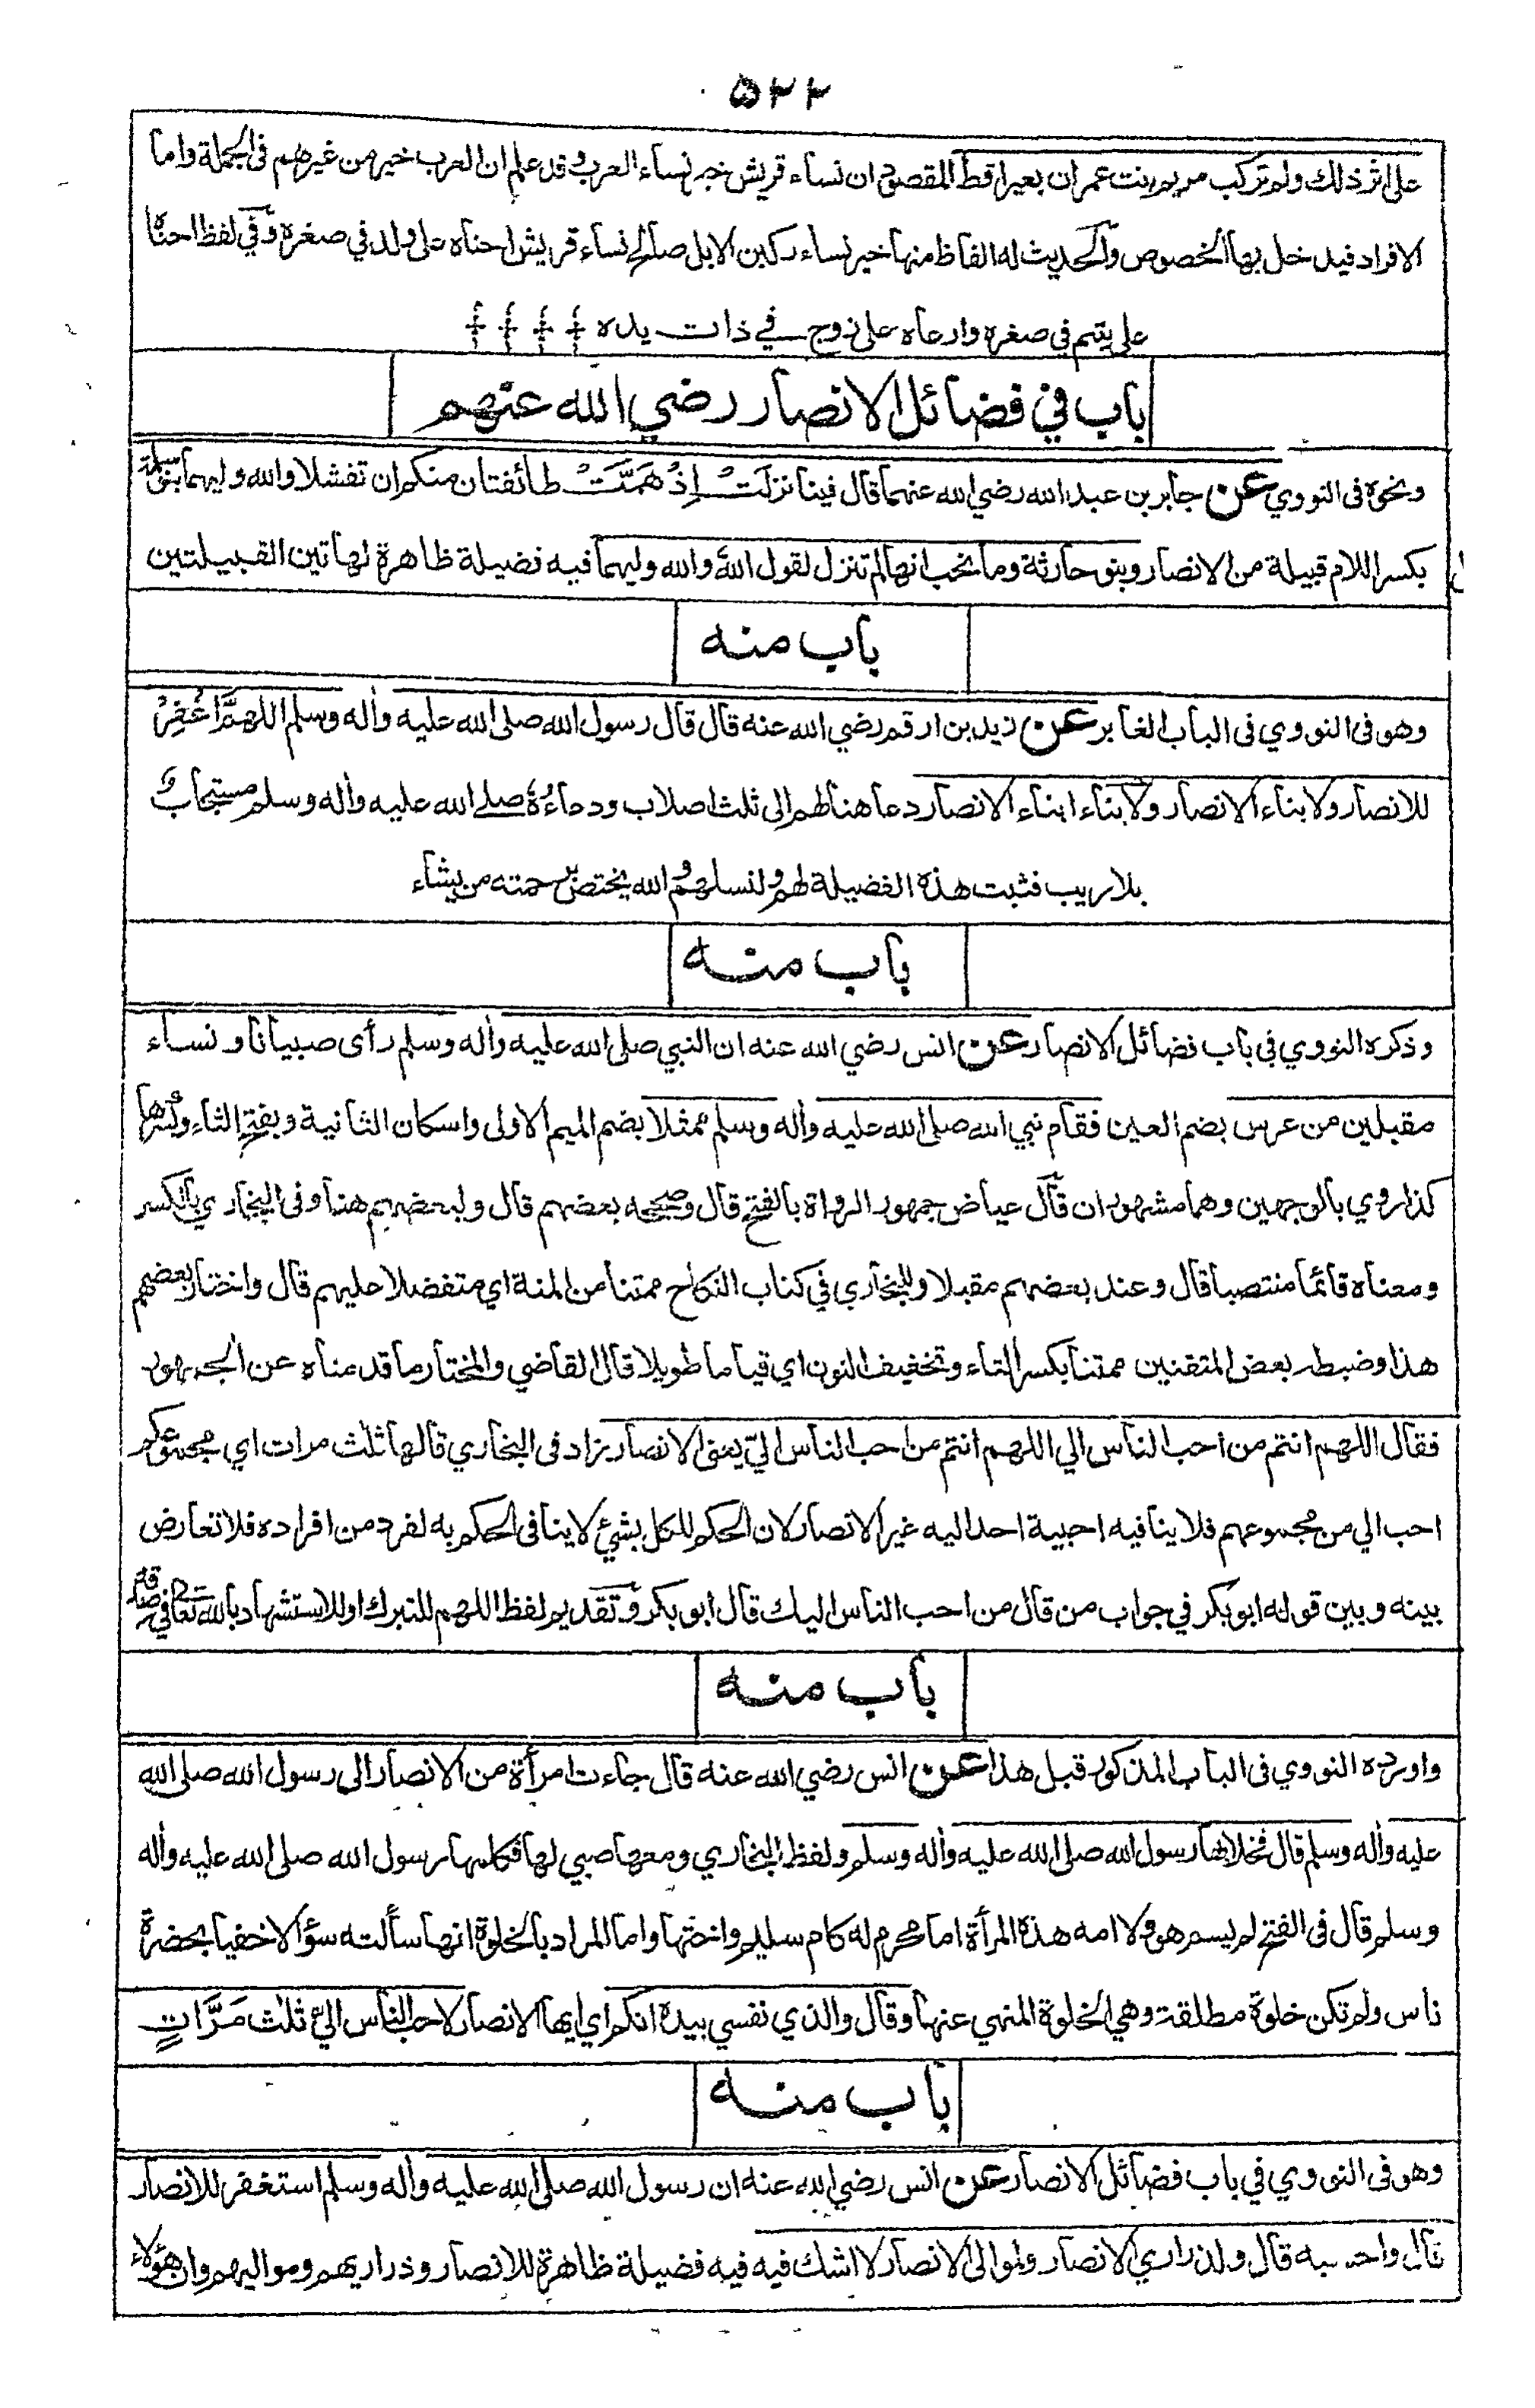 ۵۲۲
على اثر ذلك ولم تركب مريم بنت عمران بعيرا قط المقصود ان نساء قريش خير نساء العرب وقد علم ان العرب خير من غيرهم فى الجملة واما
الافراد فيدخل بها الخصوص والحديث له الفاظ منها خير نساء ركبن الابل صالح نساء قريش احناه على ولد في صغره وفي لفظ احناه
على يتيم في صغره وارعاه على زوج في ذات يده
باب في فضائل الانصار رضي الله عنهم
ونحوه فى النووي عن جابر بن عبد الله رضي الله عنهما قال فينا نزلت اِذْ هَمَّتْ طائفتان منكم ان تفشلا والله وليهما بنو سلمة
بكسر اللام قبيلة من الانصار وبنو حارثة وما نحب انها لم تنزل لقول الله والله وليهما فيه فضيلة ظاهرة لهاتين القبيلتين
باب منه
وهو فى النووي فى الباب الغابر عن زيد بن ارقم رضي الله عنه قال قال رسول الله صلى الله عليه واٰله وسلم اللهمَّ اغْفِرْ
للانصار ولابناء الانصار ولابناء ابناء الانصار دعا هنا لهم الى ثلث اصلاب ودعاءُهٗ صلے الله عليه واٰله وسلم مستجابٌ
بلا ريب فثبت هذه الفضيلة لهم ولنسلهم والله يختص برحمته من يشاء
باب منه
وذكره النووي في باب فضائل الانصار عن انس رضي الله عنه ان النبي صلى الله عليه واٰله وسلم رأى صبيانا ونساء
مقبلين من عرس بضم العين فقام نبي الله صلى الله عليه واٰله وسلم ممثلا بضم الميم الاولى واسكان الثانية وبفتح الثاء وكسرها
كذا روي بالوجهين وهما مشهوران قال عياض جمهور الرواة بالفتح قال وصححه بعضهم قال ولبعضهم هنا وفى البخاري بالكسر
ومعناه قائما منتصبا قال وعند بعضهم مقبلا وللبخاري في كتاب النكاح ممتنا من المنة اي متفضلا عليهم قال واختار بعضهم
هذا وضبطه بعض المتقنين ممتنا بكسر التاء وتخفيف النون اي قياما طويلا قال القاضي والمختار ما قدمناه عن الجمهور
فقال اللهم انتم من احب الناس الي اللهم انتم من احب الناس اليّ يعنى الانصار زاد فى البخاري قالها ثلٰث مرات اي مجموعكم
احب الي من مجموعهم فلا ينافيه احبية احد اليه غير الانصار لان الحكم للكل بشئ لا ينافى الحكم به لفرد من افراده فلا تعارض
بينه وبين قوله ابو بكر في جواب من قال من احب الناس اليك قال ابو بكر وتقديم لفظ اللهم للتبرك او للاستشهاد بالله تعالى في صدقه
باب منه
واورده النووي فى الباب المذكور قبل هذا عن انس رضي الله عنه قال جاءت امرأة من الانصار الى رسول الله صلى الله
عليه واٰله وسلم قال فخلا بها رسول الله صلى الله عليه واٰله وسلم ولفظ البخاري ومعها صبي لها فكلمها رسول الله صلى الله عليه واٰله
وسلم قال فى الفتح لم يسم هو ولا امه هذه المرأة اما محرم له كام سليم واختها واما المراد بالخلوة انها سألته سؤالا خفيا بحضرة
ناس ولم تكن خلوة مطلقة وهي الخلوة المنهي عنها وقال والذي نفسي بيده انكم اي ايها الانصار لاحب الناس اليّ ثلٰث مَرَّاتٍ
باب منه
وهو فى النووي في باب فضائل الانصار عن انس رضي الله عنه ان رسول الله صلى الله عليه واٰله وسلم استغفر للانصار
قال واحسبه قال ولذراري الانصار ولموالى الانصار لا اشك فيه فيه فضيلة ظاهرة للانصار وذراريهم ومواليهم وان هؤلاء